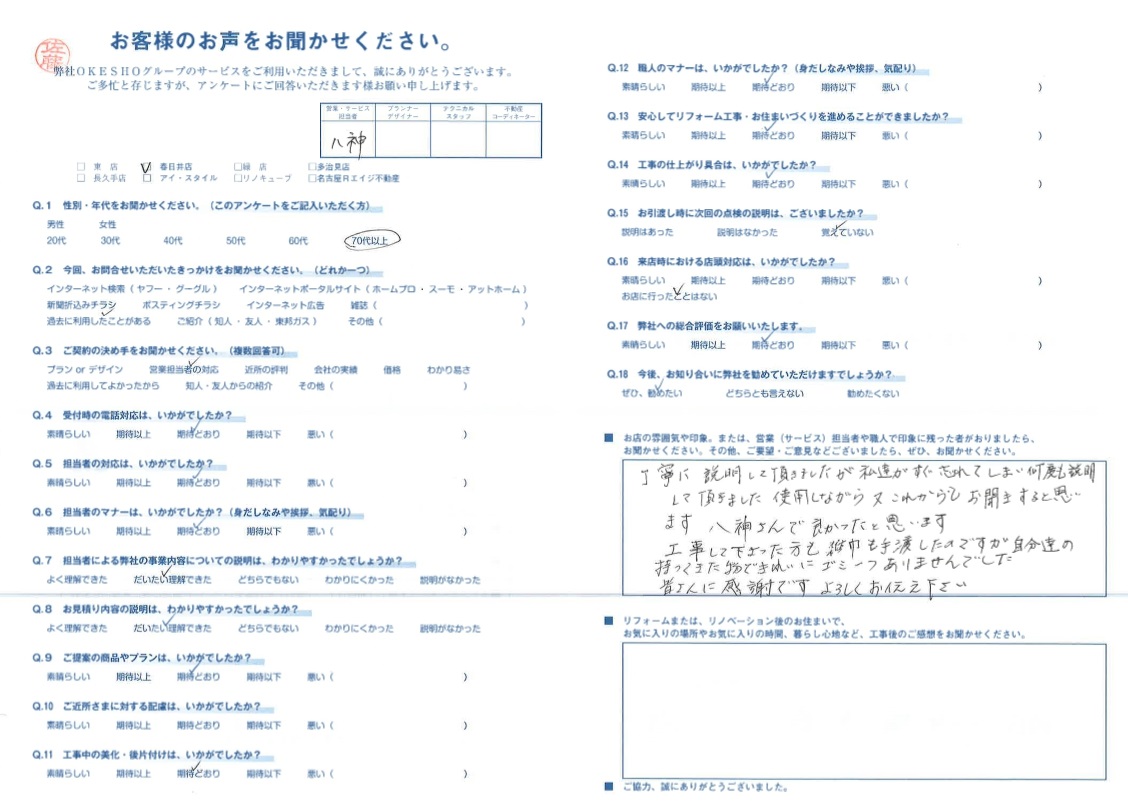 お客様のお声をお聞かせください。
佐藤
弊社OKESHOグループのサービスをご利用いただきまして、誠にありがとうございます。
ご多忙と存じますが、アンケートにご回答いただきます様お願い申し上げます。
営業・サービス担当者 プランナーデザイナー テクニカルスタッフ 不動産コーディネーター
八神
□ 東 店 □ 春日井店 □緑 店 □多治見店
□ 長久手店 □ アイ・スタイル □リノキューブ □名古屋Rエイジ不動産
Q.1 性別・年代をお聞かせください。（このアンケートをご記入いただく方）
男性 女性
20代 30代 40代 50代 60代 70代以上
Q.2 今回、お問合せいただいたきっかけをお聞かせください。（どれか一つ）
インターネット検索（ ヤフー ・ グーグル ） インターネットポータルサイト（ ホームプロ ・ スーモ ・ アットホーム ）
新聞折込みチラシ ポスティングチラシ インターネット広告 雑誌（ ）
過去に利用したことがある ご紹介（ 知人 ・ 友人 ・ 東邦ガス ） その他（ ）
Q.3 ご契約の決め手をお聞かせください。（複数回答可）
プラン or デザイン 営業担当者の対応 近所の評判 会社の実績 価格 わかり易さ
過去に利用してよかったから 知人・友人からの紹介 その他（ ）
Q.4 受付時の電話対応は、いかがでしたか？
素晴らしい 期待以上 期待どおり 期待以下 悪い（ ）
Q.5 担当者の対応は、いかがでしたか？
素晴らしい 期待以上 期待どおり 期待以下 悪い（ ）
Q.6 担当者のマナーは、いかがでしたか？（身だしなみや挨拶、気配り）
素晴らしい 期待以上 期待どおり 期待以下 悪い（ ）
Q.7 担当者による弊社の事業内容についての説明は、わかりやすかったでしょうか？
よく理解できた だいたい理解できた どちらでもない わかりにくかった 説明がなかった
Q.8 お見積り内容の説明は、わかりやすかったでしょうか？
よく理解できた だいたい理解できた どちらでもない わかりにくかった 説明がなかった
Q.9 ご提案の商品やプランは、いかがでしたか？
素晴らしい 期待以上 期待どおり 期待以下 悪い（ ）
Q.10 ご近所さまに対する配慮は、いかがでしたか？
素晴らしい 期待以上 期待どおり 期待以下 悪い（ ）
Q.11 工事中の美化・後片付けは、いかがでしたか？
素晴らしい 期待以上 期待どおり 期待以下 悪い（ ）
Q.12 職人のマナーは、いかがでしたか？（身だしなみや挨拶、気配り）
素晴らしい 期待以上 期待どおり 期待以下 悪い（ ）
Q.13 安心してリフォーム工事・お住まいづくりを進めることができましたか？
素晴らしい 期待以上 期待どおり 期待以下 悪い（ ）
Q.14 工事の仕上がり具合は、いかがでしたか？
素晴らしい 期待以上 期待どおり 期待以下 悪い（ ）
Q.15 お引渡し時に次回の点検の説明は、ございましたか？
説明はあった 説明はなかった 覚えていない
Q.16 来店時における店頭対応は、いかがでしたか？
素晴らしい 期待以上 期待どおり 期待以下 悪い（ ）
お店に行ったことはない
Q.17 弊社への総合評価をお願いいたします。
素晴らしい 期待以上 期待どおり 期待以下 悪い（ ）
Q.18 今後、お知り合いに弊社を勧めていただけますでしょうか？
ぜひ、勧めたい どちらとも言えない 勧めたくない
■ お店の雰囲気や印象。または、営業（サービス）担当者や職人で印象に残った者がおりましたら、
お聞かせください。その他、ご要望・ご意見などございましたら、ぜひ、お聞かせください。
丁寧に 説明して頂きましたが 私達がすぐ忘れてしまい何度も説明
して頂きました 使用しながら 又 これからも お聞きすると思い
ます 八神さんで良かったと思います
工事して下さった方も 雑巾も手渡したのですが自分達の
持ってきた物できれいにゴミ一つありませんでした
皆さんに感謝です よろしくお伝え下さい
■ リフォームまたは、リノベーション後のお住まいで、
お気に入りの場所やお気に入りの時間、暮らし心地など、工事後のご感想をお聞かせください。
■ ご協力、誠にありがとうございました。